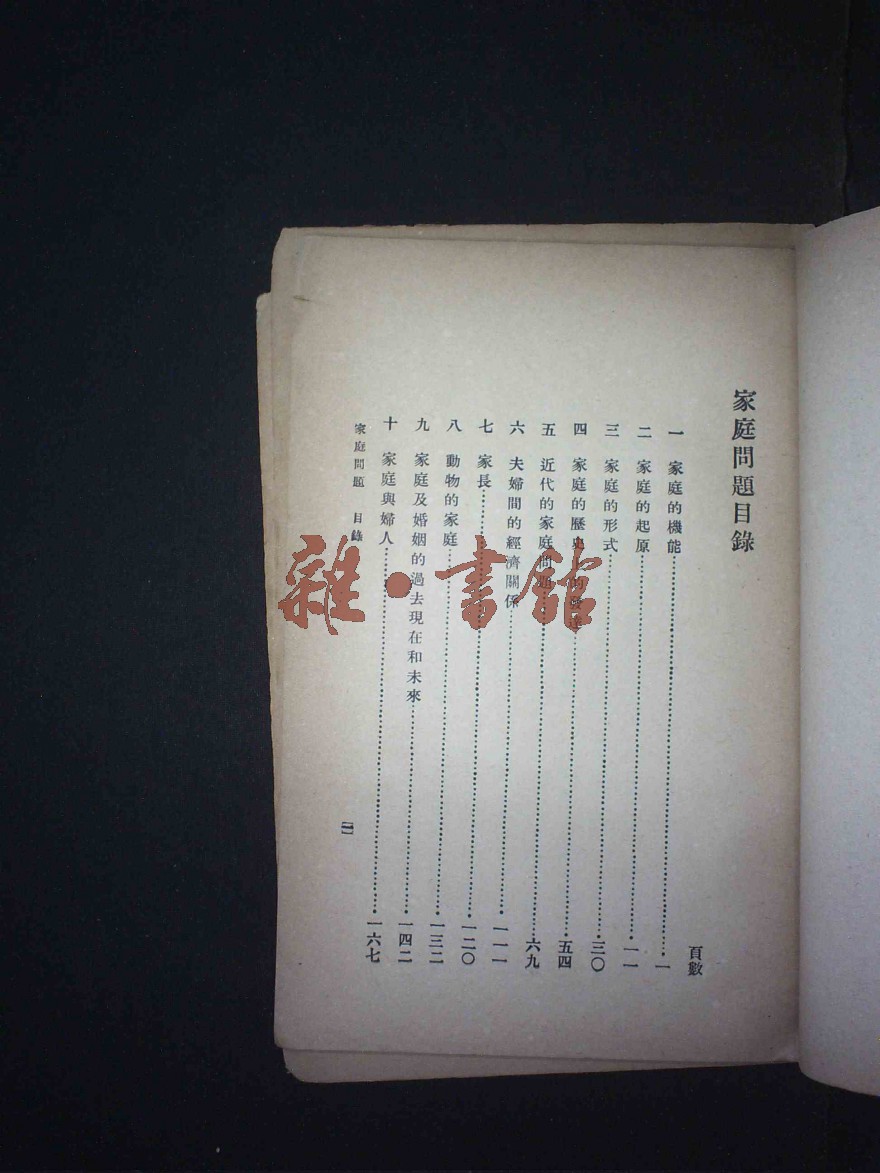 家庭問題目錄
頁數
一 家庭的機能 一
二 家庭的起原 一一
三 家庭的形式 三〇
四 家庭的歷史的發達 五四
五 近代的家庭問題 六九
六 夫婦間的經濟關係 一一一
七 家長 一二〇
八 動物的家庭 一三二
九 家庭及婚姻的過去現在和未來 一四二
十 家庭與婦人 一六七
家庭問題 目錄 [一]
雜·書館